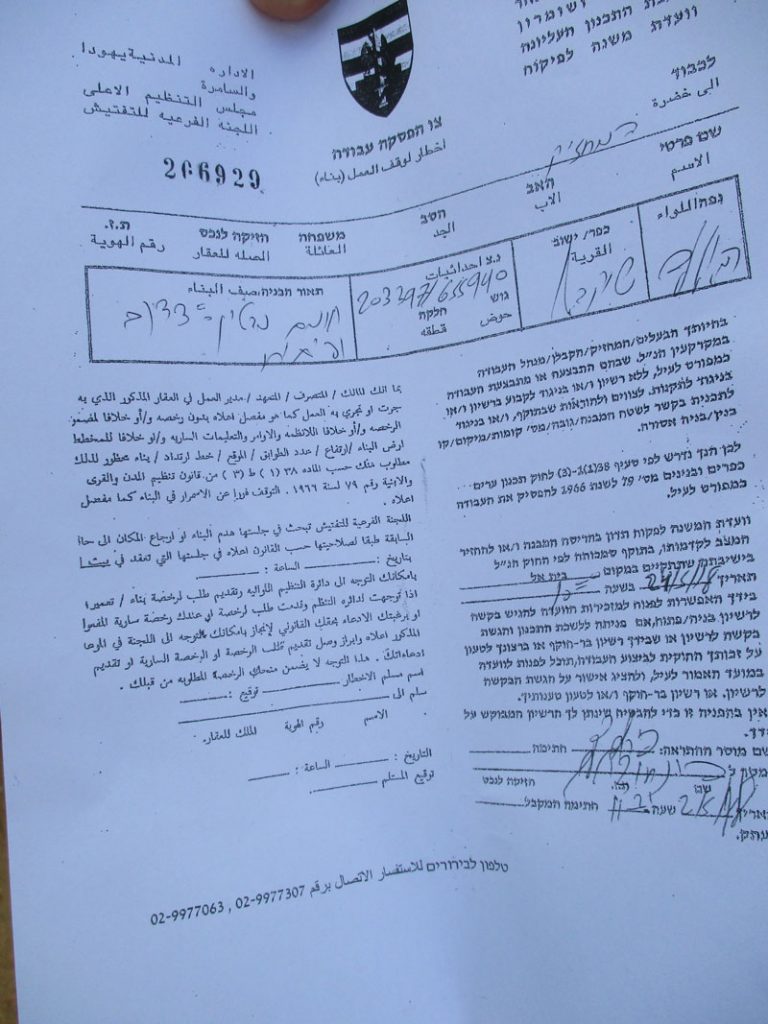 ושומרון
ת התכנון העליונה
וועדת משנה לפיקוח
الاداره المدنية يهودا
والسامرة
مجلس التنظيم الاعلى
اللجنه الفرعيه للتفتيش
לכבוד
الى حضرة
צו הפסקה עבודה
اخطار لوقف العمل (بناء)
266929
המחזיק
שם פרטי
الاسم
האב
الاب
הסב
الجد
משפחה
العائلة
חזיקה לנכס
الصله للعقار
ת.ז.
رقم الهوية
נפה/לווא
כפר/ישוב
القرية
נ.צ احداثيات
203397/655940
גוש
חלקה
حوض
قطعه
תאור הבניה/صيف البناء
בהיותך הבעלים/המחזיק/הקבלן/מנהל העבודה
במקרקעין הנ"ל, שבהם התבצעה או מתבצעת העבודה
כמפורט לעיל, ללא רשיון ו/או בניגוד לקבוע ברשיון ו/או
בניגוד לתקנות, לצווים ולהוראות שבתוקף, ו/או בניגוד
לתכנית בקשר לשטח המבנה/גובה/מס' קומות/מיקום/קו
בנין/בניה אסורה.
לכן הנך נדרש לפי סעיף 38(1)(ב-3) לחוק תכנון ערים
כפרים ובנינים מס' 79 לשנת 1966 להפסיק את העבודה
כמפורט לעיל.
וועדת המשנה לפקוח תדון בהריסת המבנה ו/או להחזיר
המצב לקדמותו, בתוקף סמכותה לפי החוק הנ"ל
בישיבתה שתתקיים במקום: בית אל
תאריך 24/5/18 בשעה
בידך האפשרות לפנות למזכירות הוועדה להגיש בקשה
לרשיון בניה/פתוח, אם פניתה ללשכת התכנון והגשת
בקשה לרשיון או שבידך רשיון בר-תוקף או ברצונך לטעון
על זכותך החוקית לביצוע העבודה, תוכל לפנות לוועדה
במועד האמור לעיל, ולהציג אישור על הגשת הבקשה
לרשיון, או רשיון בר-תוקף ו/או לטעון טענותיך.
אין בהפניה זו כדי להבטיח שינתן לך הרשיון המבוקש על
ידך.
שם מוסר ההתראה: חתימה
שם ת.ז. חזיקה לנכס
תאריך 2/5/18 שעה חתימת המקבל
بما انك المالك / المتصرف / المتعهد / مدير العمل في العقار المذكور الذي به
جرت او تجري به العمل كما هو مفصل اعلاه بدون رخصه و/أو خلافا المضمون
الرخصه و/أو خلافا للانظمه والاوامر والتعليمات الساريه و/او خلافا للمخطط
ارض البناء / ارتفاع / عدد الطوابق / الموقع / خط ارتداد / بناء محظور لذلك
مطلوب منك حسب الماده ٣٨ (١) ط (٣) من قانون تنظيم المدن والقرى
والابنية رقم ٧٩ لسنة ١٩٦٦ . التوقف فورا عن الاستمرار في البناء كما مفصل
اعلاه .
اللجنة الفرعية للتفتيش تبحث في جلستها هدم البناء او ارجاع المكان الى حالته
السابقة طبقا لصلاحيتها حسب القانون اعلاه في جلستها التي تنعقد في
بتاريخ : الساعة :
بامكانك التوجه الى دائرة التنظيم اللوائيه وتقديم طلب لرخصة بناء / تعمير؛
اذا توجهت لدائره التنظيم وقدمت طلب لرخصة او عندك رخصة سارية المفعول
او برغبتك الادعاء بحقك القانوني لإنجاز بامكانك التوجه الى اللجنة في الموعد
المذكور اعلاه وابراز وصل تقديم طلب الرخصة او الرخصة السارية او تقديم
ادعاءاتك . هذا التوجه لا يضمن منحك الرخصة المطلوبه من قبلك .
اسم مسلم الاخطار توقيع :
سلم الى
الاسم رقم الهوية المالك للعقار.
التاريخ : الساعة :
توقيع المستلم
טלפון לבירורים للاستفسار الاتصال برقم 02-9977307 , 02-9977063